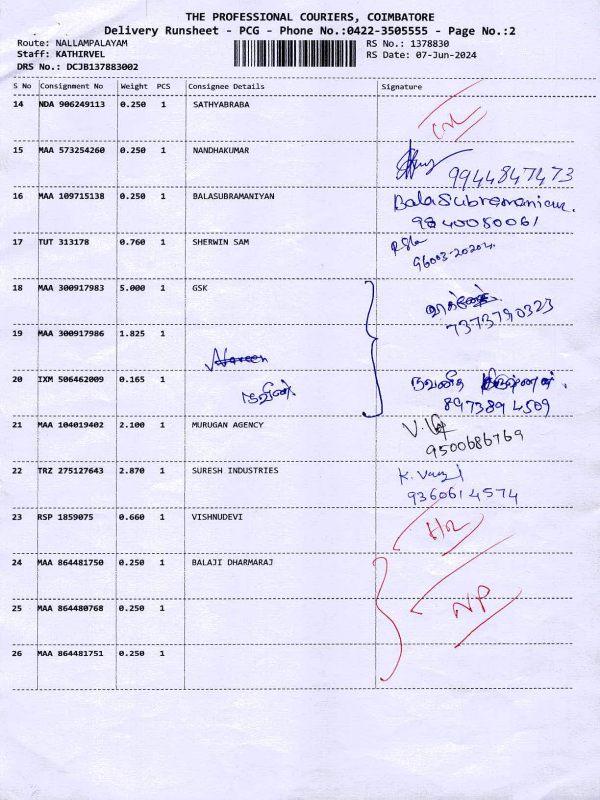 THE PROFESSIONAL COURIERS, COIMBATORE
Delivery Runsheet - PCG - Phone No.:0422-3505555 - Page No.:2
Route: NALLAMPALAYAM RS No.: 1378830
Staff: KATHIRVEL RS Date: 07-Jun-2024
DRS No.: DCJB137883002
S No Consignment No Weight PCS Consignee Details Signature
14 NDA 906249113 0.250 1 SATHYABRABA
15 MAA 573254260 0.250 1 NANDHAKUMAR
9944847473
16 MAA 109715138 0.250 1 BALASUBRAMANIYAN BalaSubramanian.
9840080061
17 TUT 313178 0.760 1 SHERWIN SAM
96003-20202.
18 MAA 300917983 5.000 1 GSK
7373790323
19 MAA 300917986 1.825 1
Naveen
20 IXM 506462009 0.165 1 நவீன் நவனீத
8973894509
21 MAA 104019402 2.100 1 MURUGAN AGENCY
9500686769
22 TRZ 275127643 2.870 1 SURESH INDUSTRIES
9360614574
23 RSP 1859075 0.660 1 VISHNUDEVI
24 MAA 864481750 0.250 1 BALAJI DHARMARAJ
25 MAA 864480768 0.250 1 NP
26 MAA 864481751 0.250 1